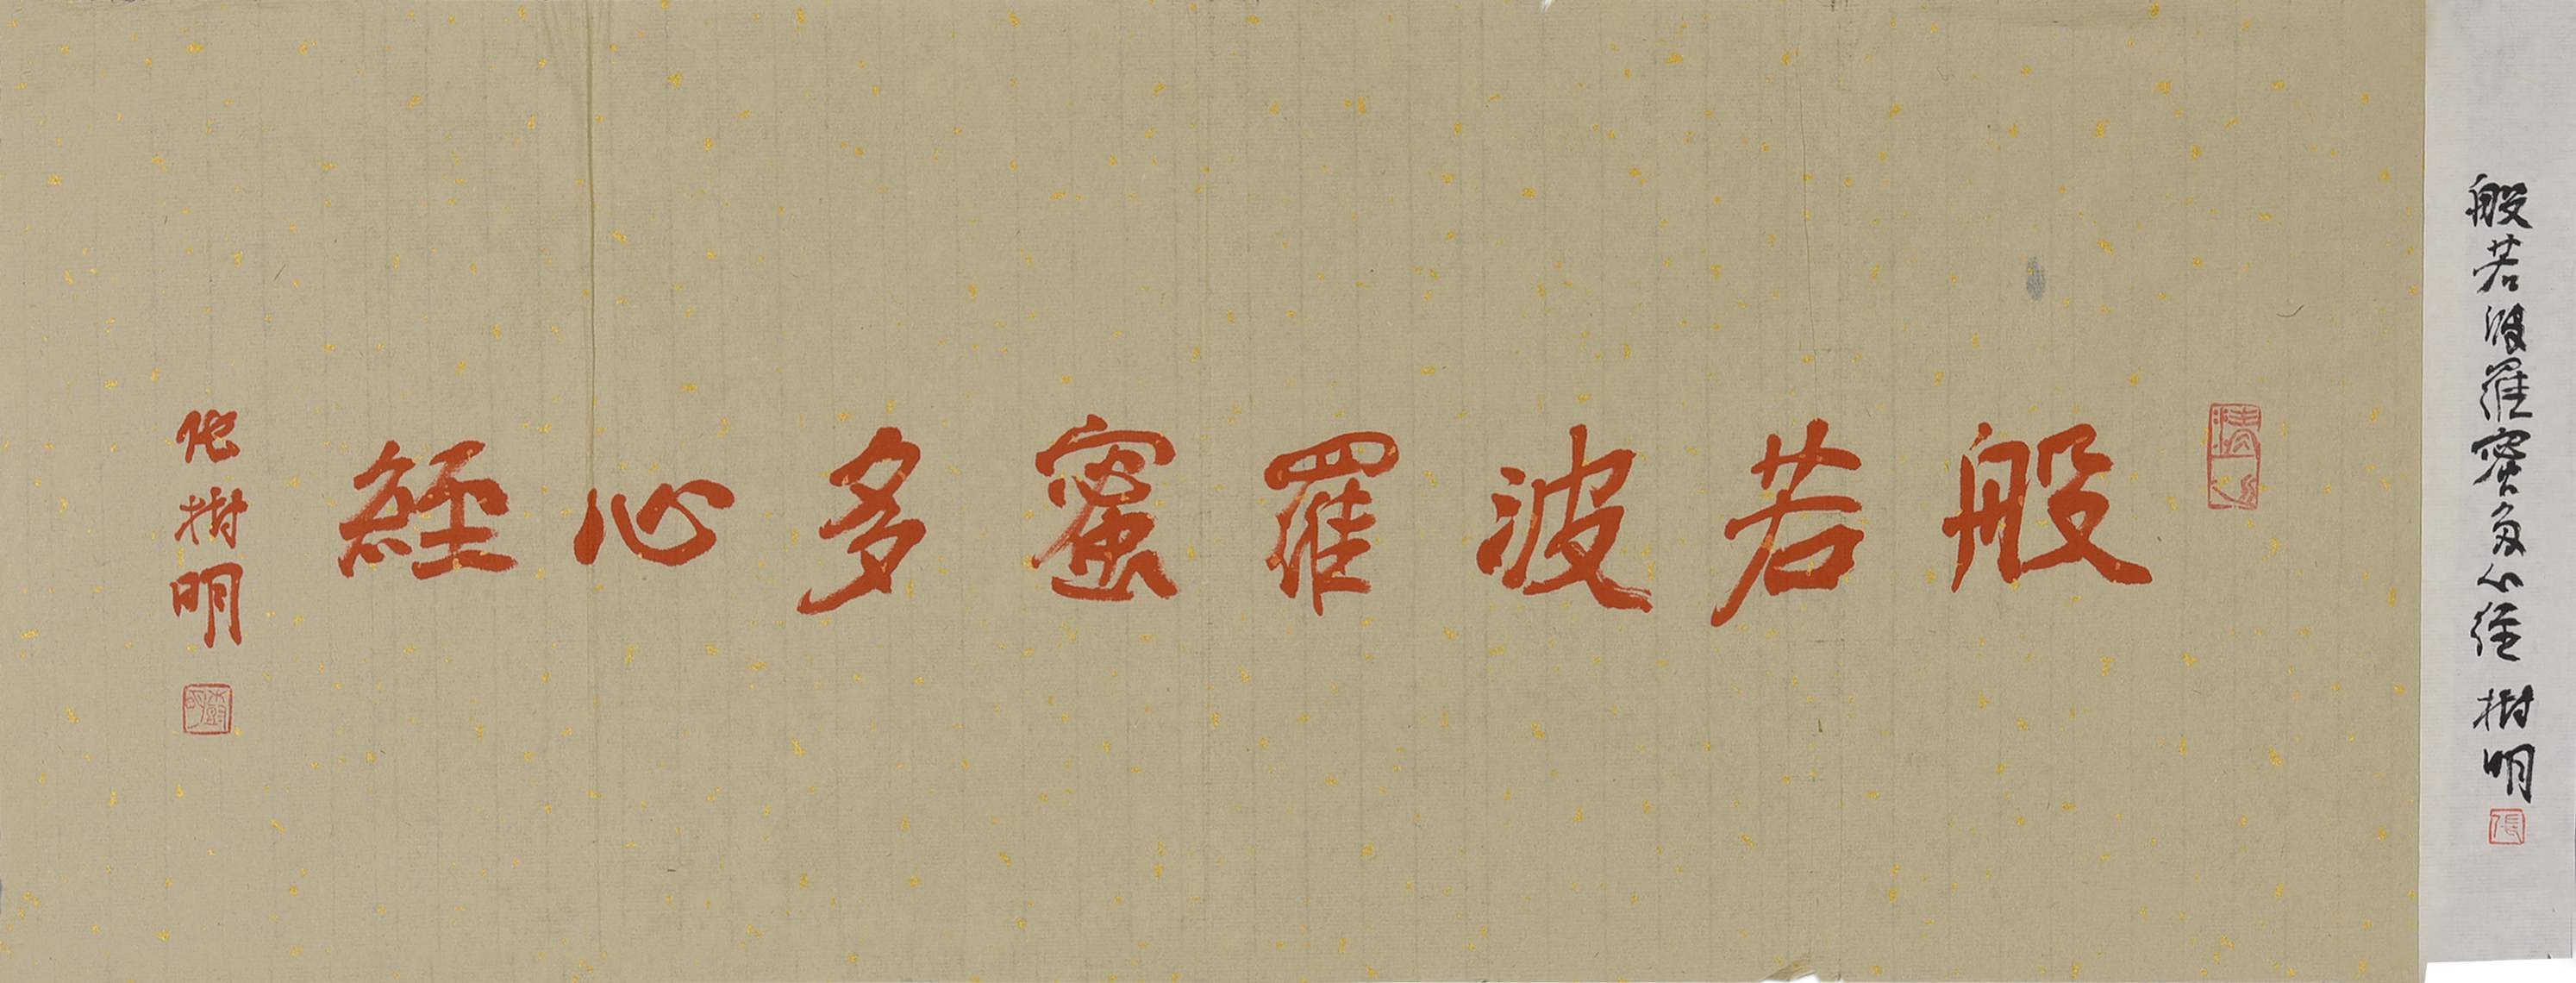 般若波羅蜜多心経 樹明
般若波羅蜜多心經
樹明